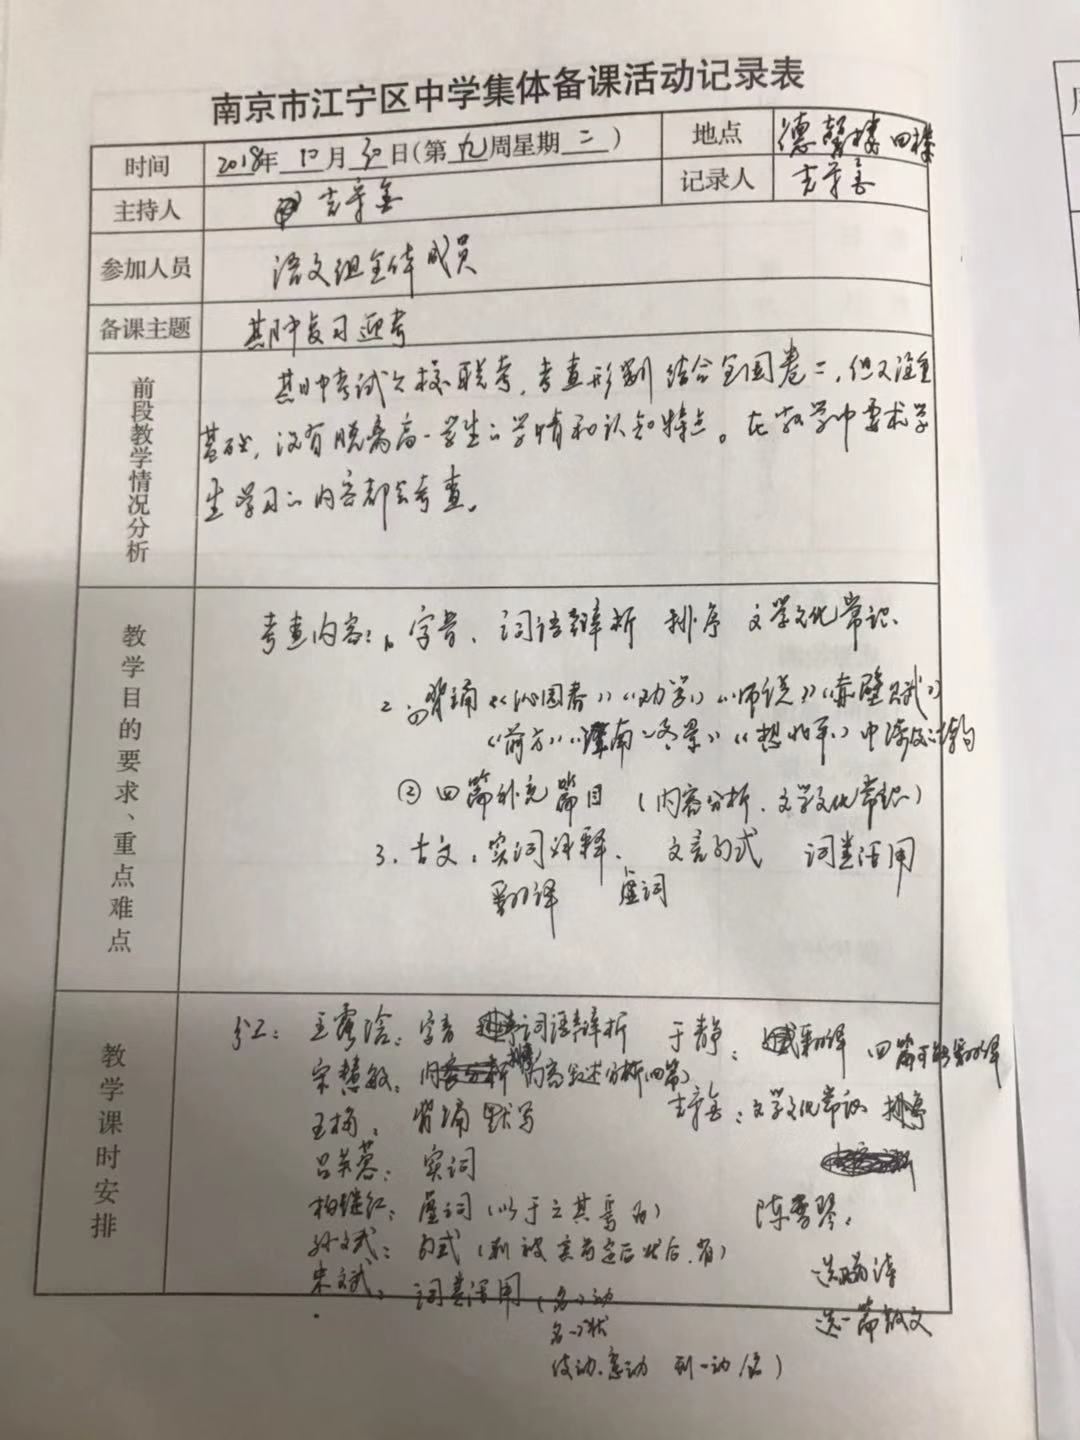 南京市江宁区中学集体备课活动记录表
时间 2018年 10 月 30 日(第 九 周星期 二 ) 地点 德馨楼 四楼
主持人 记录人
参加人员 语文组全体成员
备课主题 期中复习迎考
前段教学情况分析
期中考试六校联考，考查形式结合全国卷二，但又注重
基础，没有脱离高一学生的学情和认知特点。在教学中要求学
生学习的内容都会考查。
教学目的要求、重点难点
考查内容：1、字音、词语辨析 排序 文学文化常识、
2、背诵《沁园春》《劝学》《师说》《赤壁赋》
《前方》《江南的冬景》《想北平》中
② 四篇补充篇目 (内容分析、文学文化常识)
3、古文：实词解释、 文言句式 词类活用
翻译 虚词
教学课时安排
分工： 王露晗：字音 词语辨析 于静： 翻译 四篇 翻译
宋慧敏： 内容 分析(四篇)
王梅： 背诵 默写 文学文化常识 排序
吕美蓉： 实词
柏继红： 虚词 (以于之其焉为) 陈雪琴：
孙文斌： 句式 (判 被 宾 定后 状后 省)
朱文斌： 词类活用 (名→动
选一篇散文
名→状
使动、意动 形→动/名)